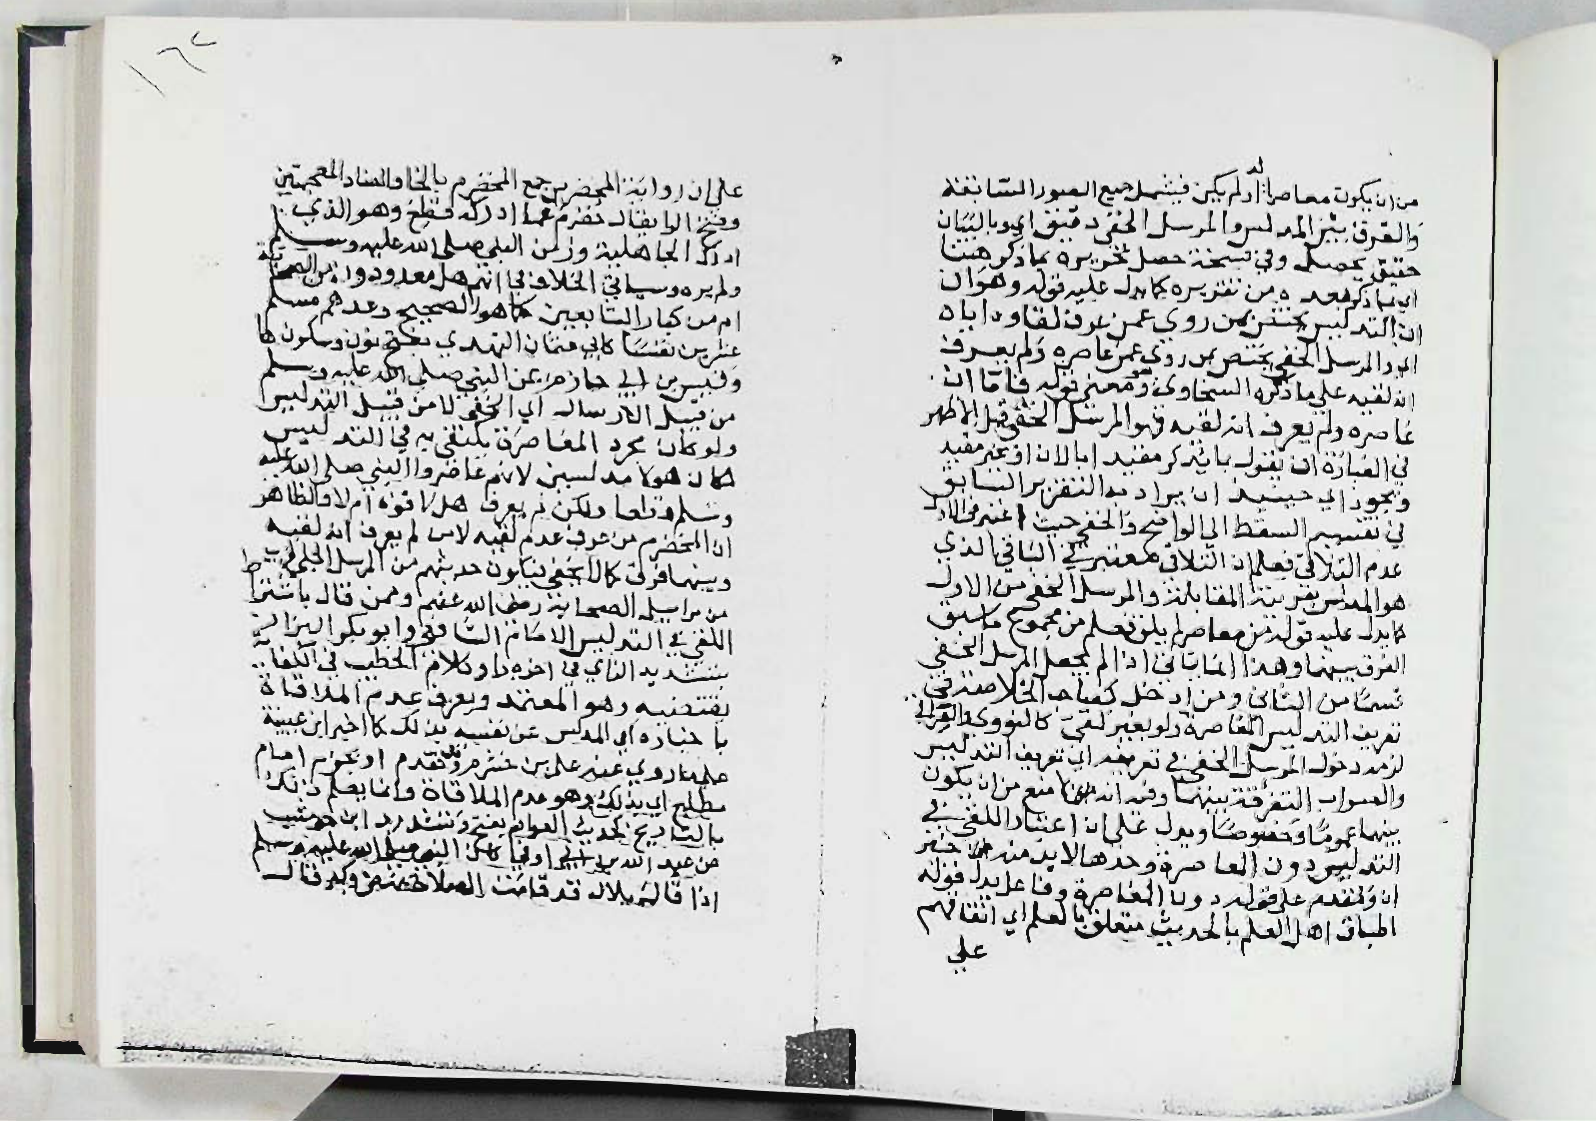 من ان يكون معاصرا له او لم يكن فيشمل جميع الصور السابقة
والفرق بين المدلس والمرسل الخفي دقيق اي وبالبيان
حقيق يحصل وفي نسخة حصل تحريره بما ذكر هنا
اي بما ذكر بعده من تقريره كما يدل عليه قوله وهو ان
ان التدليس يختص بمن روى عمن عرف لقاوه اياه
اي والمرسل الخفي يختص بمن روى عمن عاصره ولم يعرف
انه لقيه على ما ذكره السخاوي وهو معنى قوله فاما ان
عاصره ولم يعرف انه لقيه فهو المرسل الخفي قيل الاظهر
في العبارة ان يقول بما يذكر مفيد اما الان او غير مفيد
ويجوز اي حينيذ ان يراد به التقرير السابق
في تقسيم السقط الى الواضح والخفي حيث اعتبر في الاول
عدم التلاقي فعلم ان التلاقي معتبر في الثاني الذي
هو المدلس بقرينة المقابلة والمرسل الخفي من الاول
كما يدل عليه قوله من معاصر لم يلق فعلم من مجموع ما سبق
الفرق بينهما وهذا انما ياتي اذا لم يجعل المرسل الخفي
قسما من الثاني ومن ادخل كصاحب الخلاصة في
تعريف التدليس المعاصرة ولو بغير لقي كالنووي والعراقي
لزمه دخول المرسل الخفي في تعريفه اي تعريف التدليس
والصواب التفرقة بينهما وفيه انه لا منع من ان يكون
بينهما عموما وخصوصا ويدل على ان اعتبار اللقي في
التدليس دون المعاصرة وحدها لا بد منه خبر
ان وتقدم على قوله دون المعاصرة وفاعل يدل قوله
اطباق اهل العلم بالحديث متعلق بالعلم اي اتفاقهم
علي
١٦٢
على ان رواية المخضرمين جمع المخضرم بالخا والضاد المعجمتين
وفتح الرا يقال خضرم عما ادركه قطع وهو الذي
ادرك الجاهلية وزمن النبي صلى الله عليه وسلم
ولم يره وسياتي الخلاف في انهم هل معدودون من الصحابة
ام من كبار التابعين كما هو الصحيح وعدهم مسلم
عشرين نفسا كابي عثمان النهدي بفتح نون وسكون ها
وقيس بن ابي حازم عن النبي صلى الله عليه وسلم
من قبيل الارسال اي الخفي لا من قبيل التدليس
ولو كان مجرد المعاصرة يكتفى به في التدليس
لكان هولا مدلسين لانهم عاصروا النبي صلى الله عليه
وسلم قطعا ولكن لم يعرف هل لقوه ام لا والظاهر
ان المخضرم من عرف عدم لقيه لا من لم يعرف انه لقيه
وبينهما فرق كما لا يخفى فيكون حديثهم من المرسل الجلي
من مراسيل الصحابة رضي الله عنهم وممن قال باشتراط
اللقي في التدليس الامام الشافعي وابو بكر البزار
بتشديد الزاي في اخره را وكلام الخطيب في الكفاية
يقتضيه وهو المعتمد ويعرف عدم الملاقاة
باخباره اي المدلس عن نفسه بذلك كما اخبر ابن عيينة
علي بن خشرم وتقدم او بجزم امام
مطلع اي بذلك وهو عدم الملاقاة وانما يعلم ذلك
بالتاريخ كحديث العوام بفتح وتشديد ابن حوشب
عن عبد الله بن ابي اوفى كان النبي صلى الله عليه وسلم
اذا قال بلال قد قامت الصلاة نهض وكبر قال